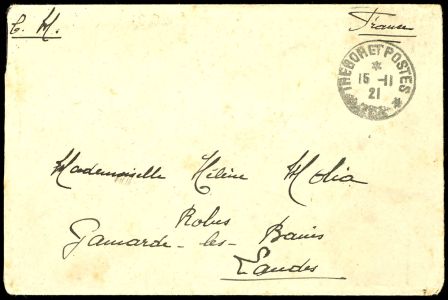 C. M.
France
TRESOR ET POSTES
*
15 -11
21
*
Mademoiselle Hélène Molia
Robes
Gamarde-les-Bains
Landes